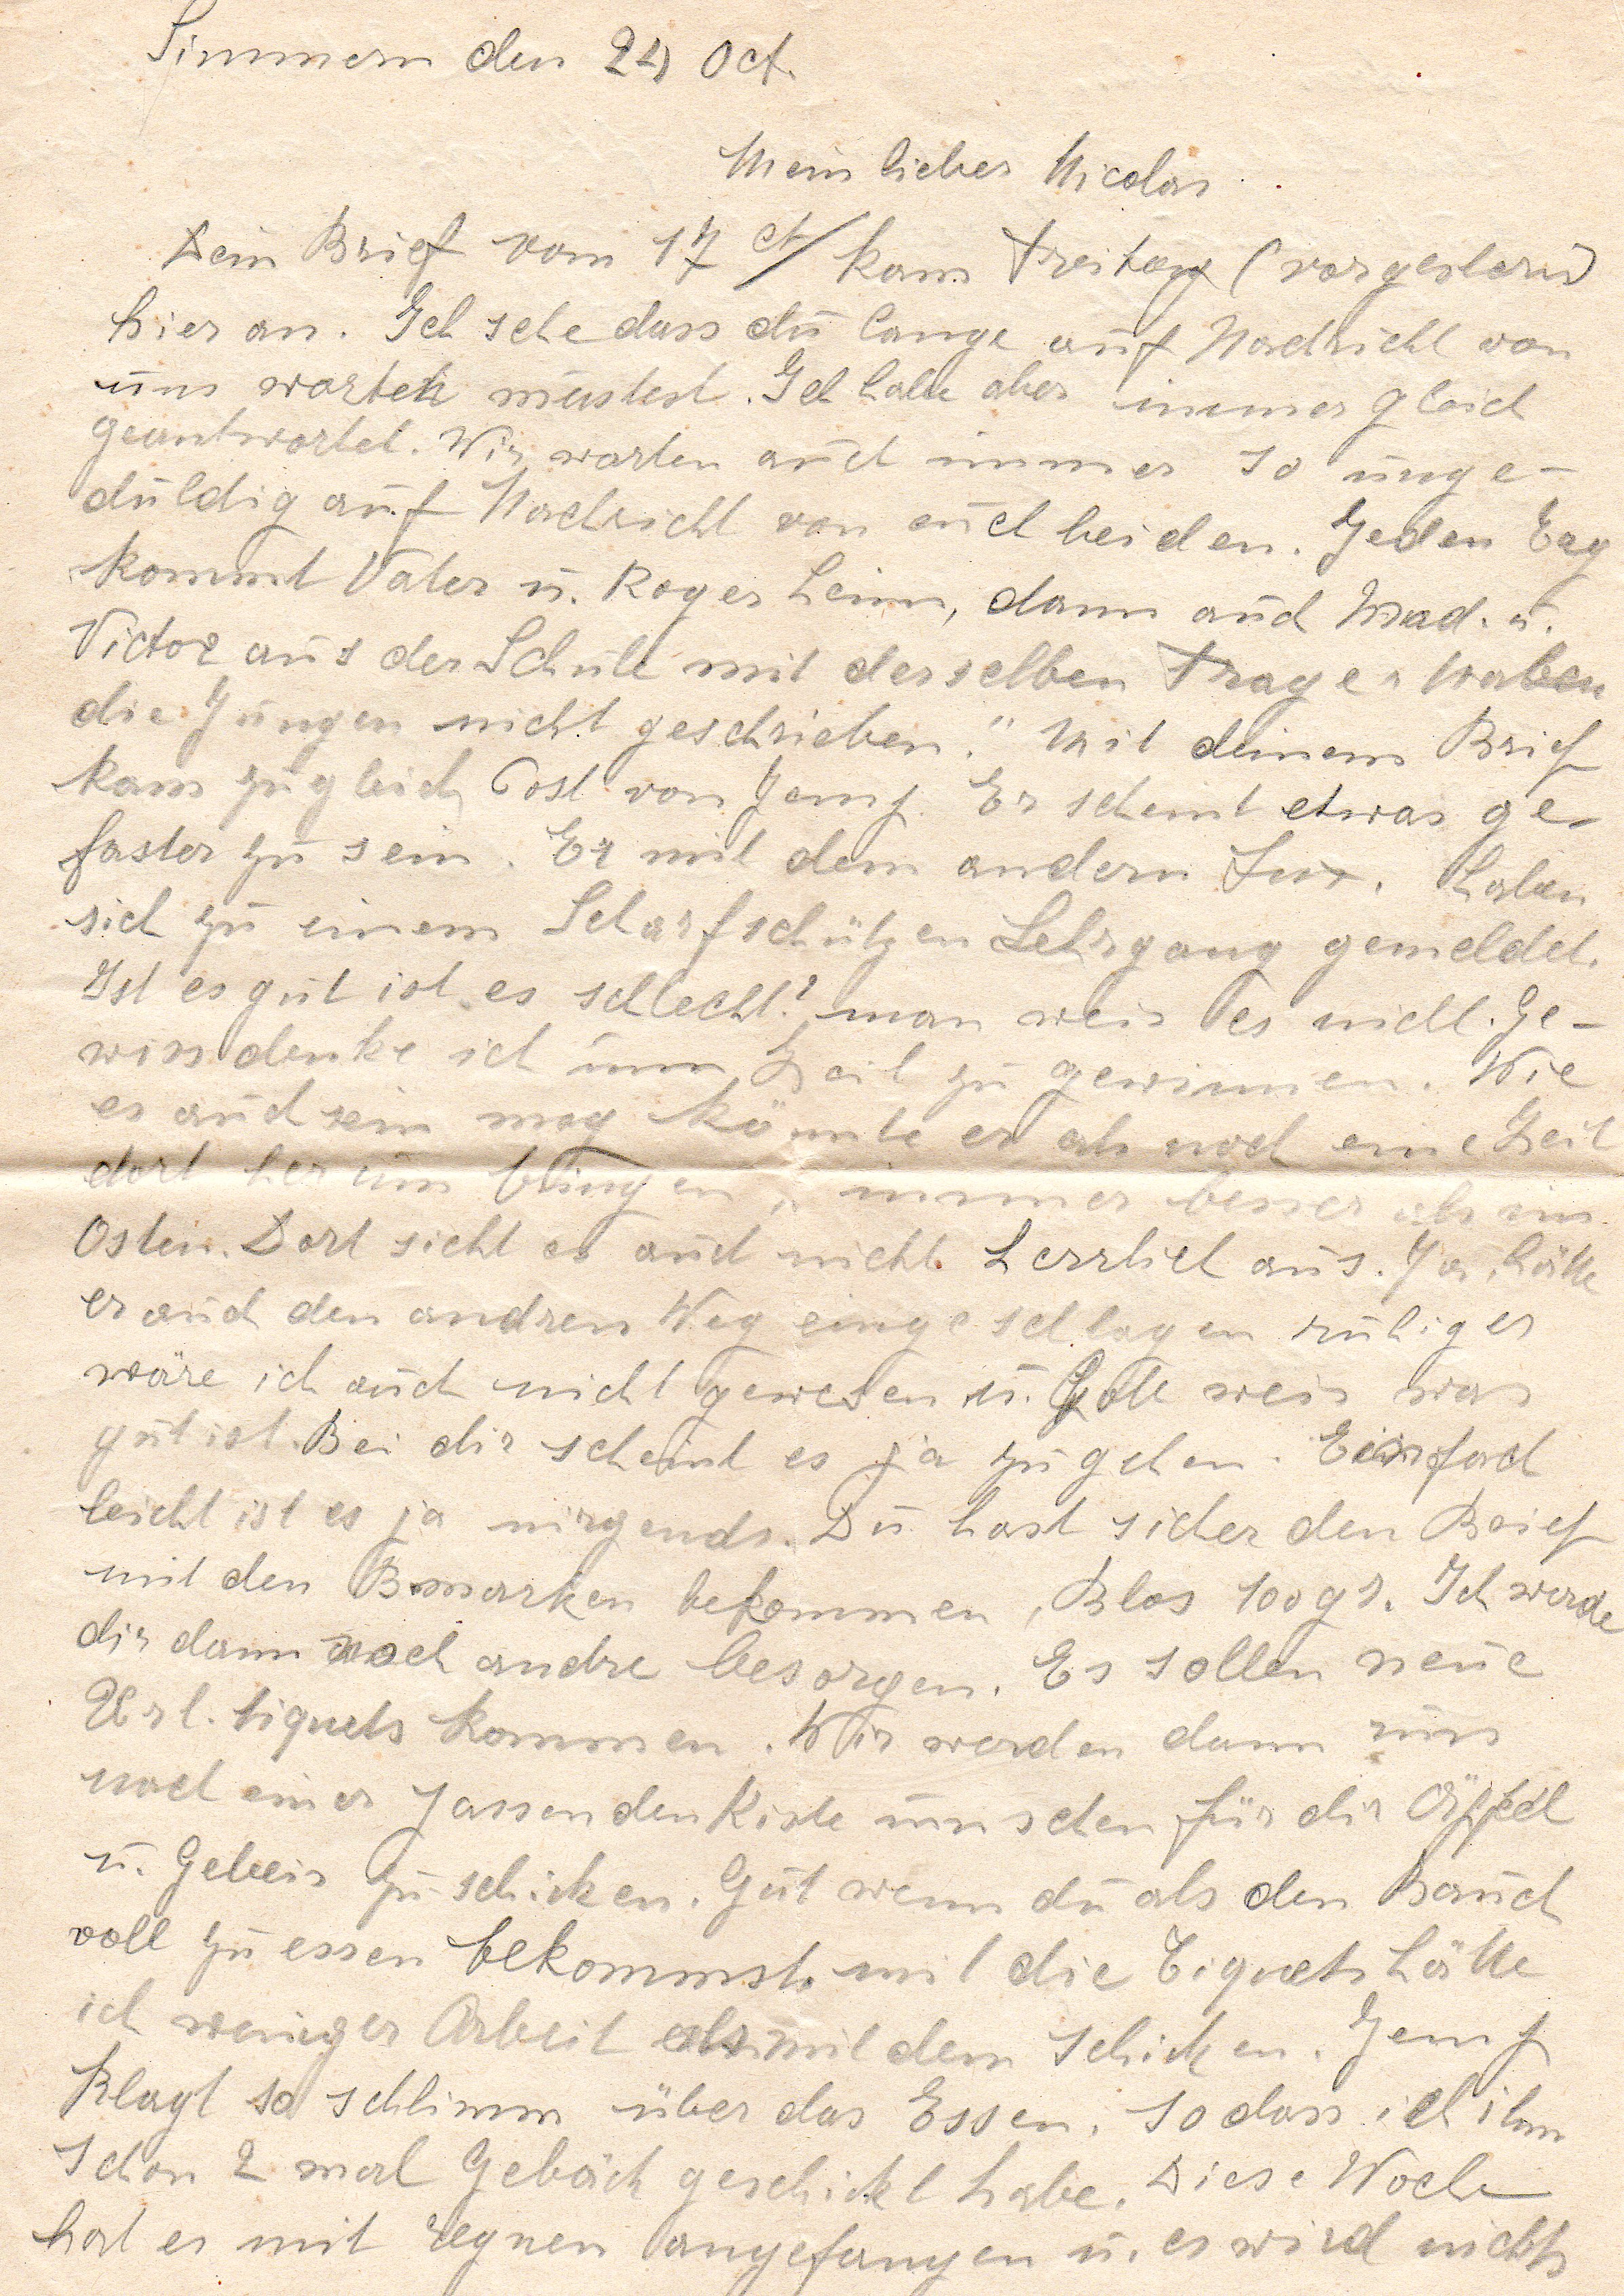 Simmern den 24 Oct.
Mein lieber Nicolas
Dein Brief vom 17 ct/ kam Freitag (vorgestern)
hier an. Ich sehe dass du lange auf Nachricht von
uns warten mustest. Ich habe aber immer gleich
geantwortet. Wir warten auch immer so unge-
duldig auf Nachricht von euch beiden. Jeden Tag
kommt Vater u. Roger heim, dann auch Mad. u.
Victor aus der Schule mit derselben Frage "Haben
die Jungen nicht geschrieben." Mit deinem Brief
kam zugleich Post von Jemp. Er scheint etwas ge-
faster zu sein. Er mit dem andern Lux. haben
sich zu einem Scharfschützen Lehrgang gemeldet.
Ist es gut ist es schlecht? man weis es nicht. Ge-
wiss denke ich um Zeit zu gewinnen. Wie
es auch sein mag könnte er als noch eine Zeit
dort herum bringen, immer besser als im
Osten. Dort sieht es auch nicht herrlich aus. Ja, hätte
er auch den andren Weg eingeschlagen ruhiger
wäre ich auch nicht gewesen u. Gott weis was
gut ist. Bei dir scheint es ja zu gehen. Einfach
leicht ist es ja nirgends. Du hast sicher den Brief
mit den Bmarken bekommen, Blos 100 gr. Ich werde
dir dann noch andre besorgen. Es sollen neue
Url. tiquets kommen. Wir werden dann uns
nach einer passenden Kiste umsehen für dir Äpfel
u. Gebeis zu schicken. Gut wenn du als den Bauch
voll zu essen bekommst. mit die Tiquets hätte
ich weniger Arbeit als mit dem schicken. Jemp
klagt so schlimm über das Essen, sodass ich ihm
schon 2 mal Gebäck geschickt habe. Diese Woche
hat es mit regnen angefangen u. es wird nichts